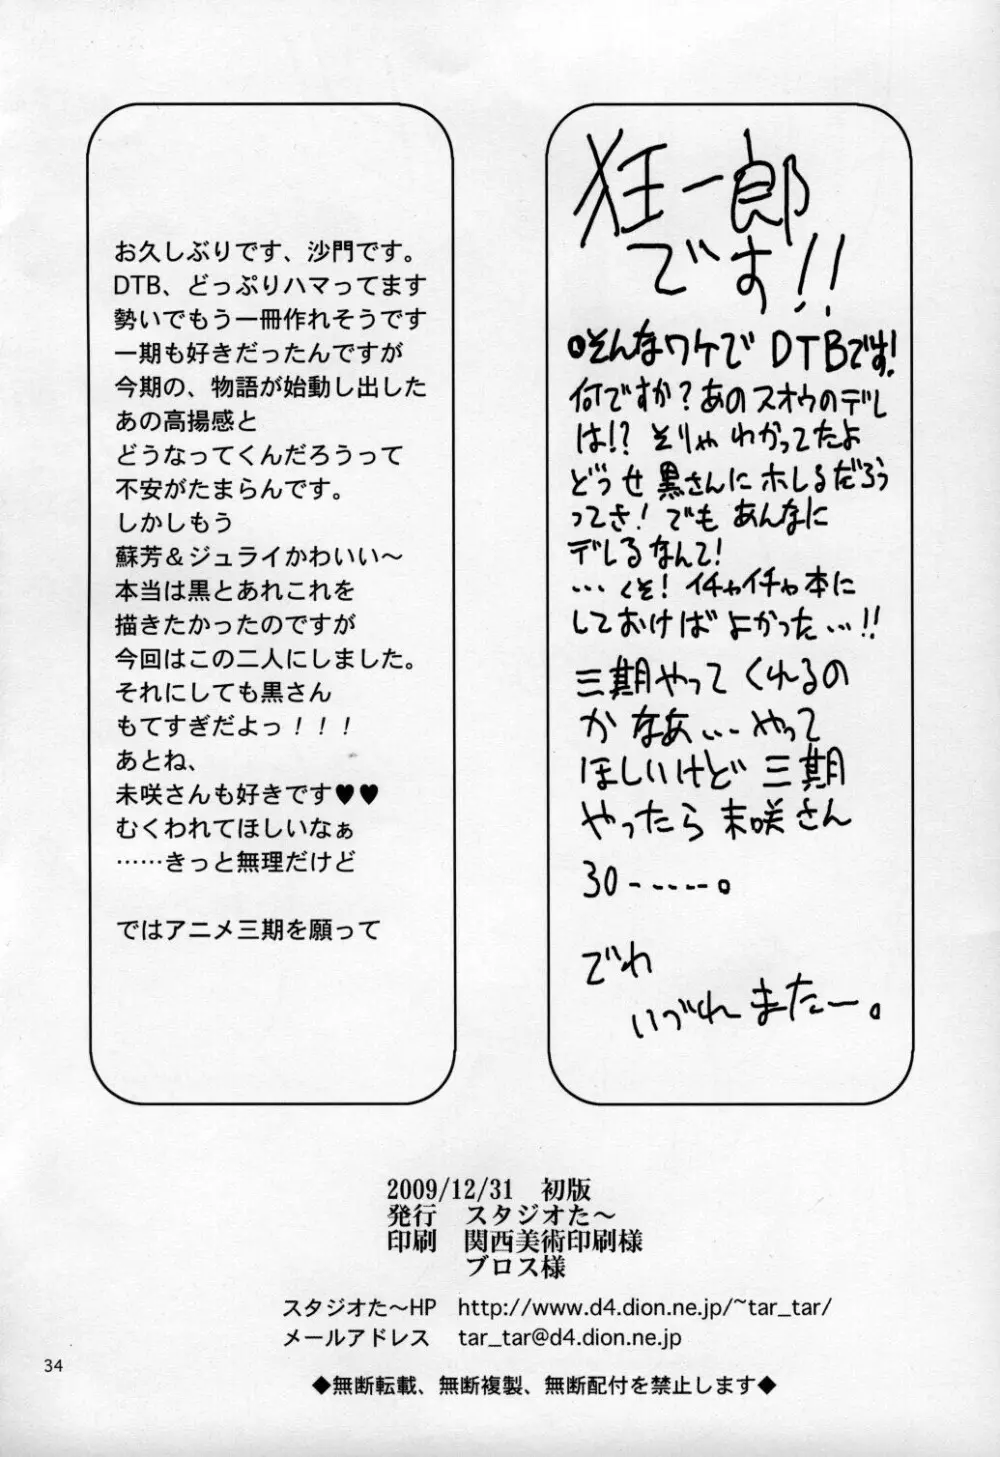 狂一郎
です!!
●そんなワケで DTBです!
何ですか?あのスオウのデレ
は!? そりゃわかってたよ
どうせ黒さんにホレるだろう
ってさ! でも あんなに
デレるなんて!
…くそ! イチャイチャ本に
しておけばよかった…!!
三期やってくれるの
かなあ…やって
ほしいけど三期
やったら未咲さん
30……。
でわ
いづれまたー。
お久しぶりです、沙門です。
DTB、どっぷりハマってます
勢いでもう一冊作れそうです
一期も好きだったんですが
今期の、物語が始動し出した
あの高揚感と
どうなってくんだろうって
不安がたまらんです。
しかしもう
蘇芳&ジュライかわいい~
本当は黒とあれこれを
描きたかったのですが
今回はこの二人にしました。
それにしても黒さん
もてすぎだよっ!!!
あとね、
未咲さんも好きです♥♥
むくわれてほしいなぁ
……きっと無理だけど
ではアニメ三期を願って
2009/12/31 初版
発行 スタジオた~
印刷 関西美術印刷様
ブロス様
スタジオた~HP http://www.d4.dion.ne.jp/~tar_tar/
メールアドレス tar_tar@d4.dion.ne.jp
34
◆無断転載、無断複製、無断配付を禁止します◆